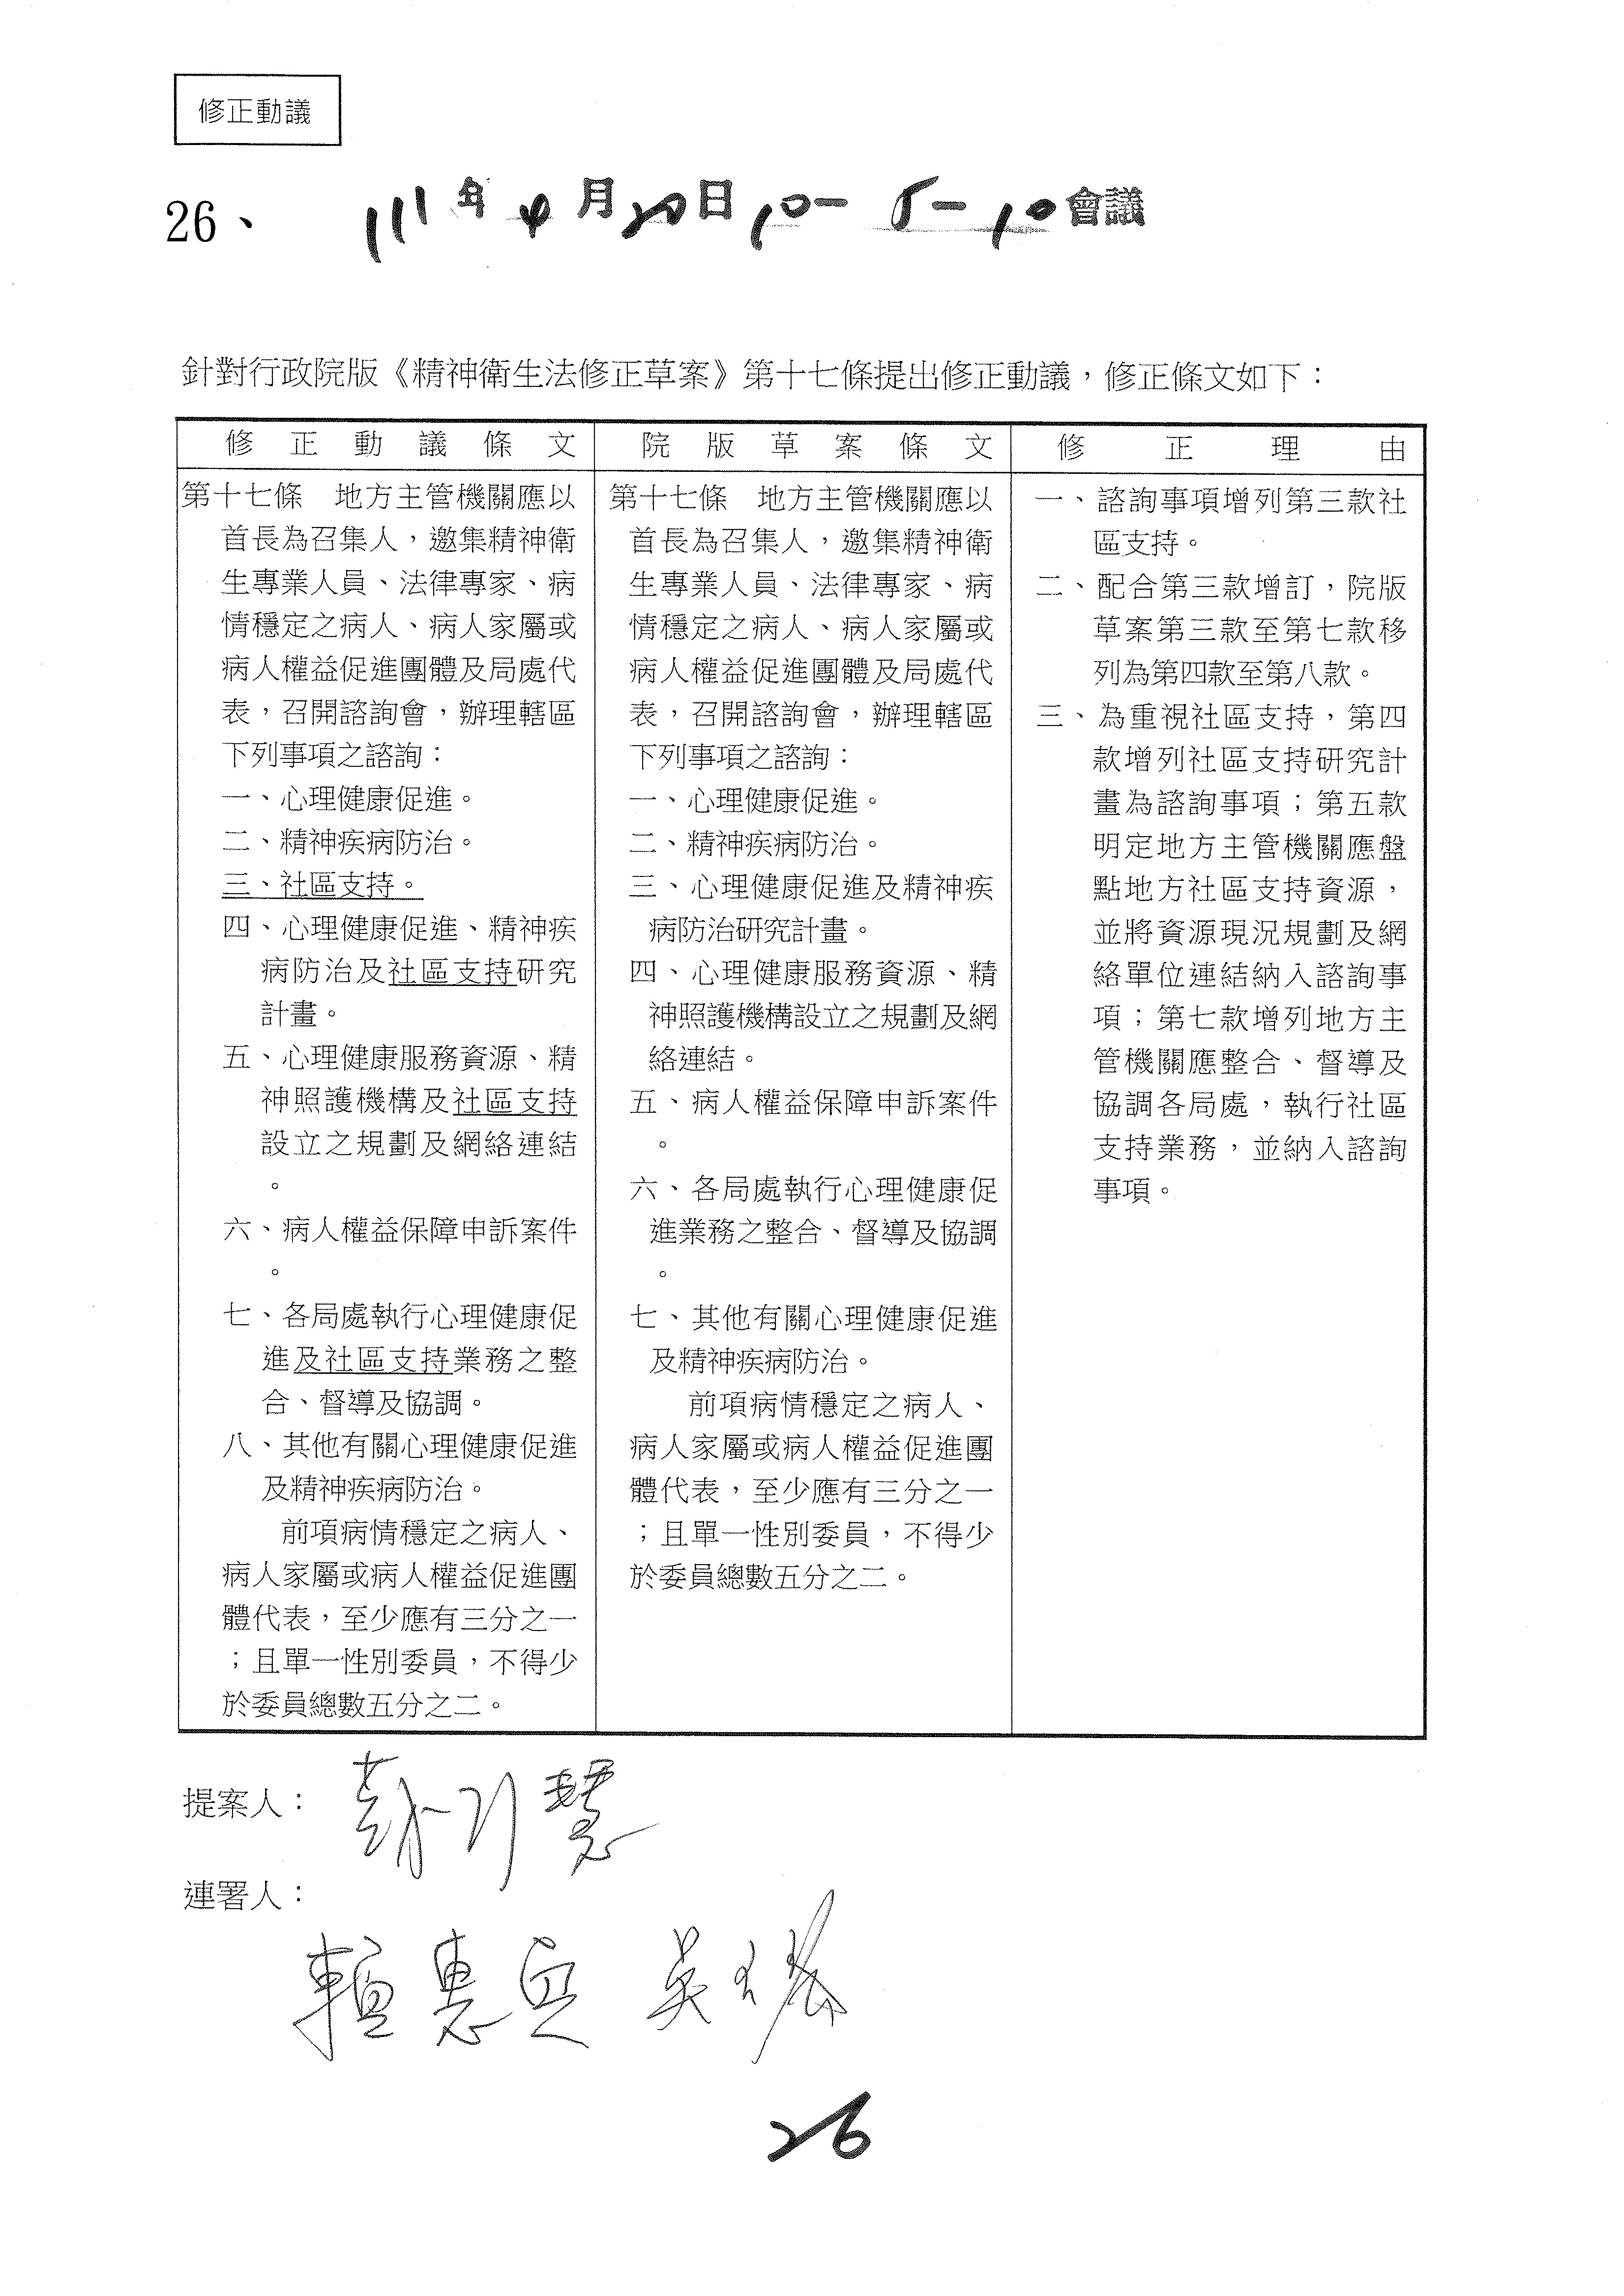 修正動議
26、
111年4月20日10-5-10會議
針對行政院版《精神衛生法修正草案》第十七條提出修正動議，修正條文如下：
修正動議條文
第十七條　地方主管機關應以
首長為召集人，邀集精神衛
生專業人員、法律專家、病
情穩定之病人、病人家屬或
病人權益促進團體及局處代
表，召開諮詢會，辦理轄區
下列事項之諮詢：
一、心理健康促進。
二、精神疾病防治。
三、社區支持。
四、心理健康促進、精神疾
病防治及社區支持研究
計畫。
五、心理健康服務資源、精
神照護機構及社區支持
設立之規劃及網絡連結
。
六、病人權益保障申訴案件
。
七、各局處執行心理健康促
進及社區支持業務之整
合、督導及協調。
八、其他有關心理健康促進
及精神疾病防治。
前項病情穩定之病人、
病人家屬或病人權益促進團
體代表，至少應有三分之一
；且單一性別委員，不得少
於委員總數五分之二。
院版草案條文
第十七條　地方主管機關應以
首長為召集人，邀集精神衛
生專業人員、法律專家、病
情穩定之病人、病人家屬或
病人權益促進團體及局處代
表，召開諮詢會，辦理轄區
下列事項之諮詢：
一、心理健康促進。
二、精神疾病防治。
三、心理健康促進及精神疾
病防治研究計畫。
四、心理健康服務資源、精
神照護機構設立之規劃及網
絡連結。
五、病人權益保障申訴案件
。
六、各局處執行心理健康促
進業務之整合、督導及協調
。
七、其他有關心理健康促進
及精神疾病防治。
前項病情穩定之病人、
病人家屬或病人權益促進團
體代表，至少應有三分之一
；且單一性別委員，不得少
於委員總數五分之二。
修正理由
一、諮詢事項增列第三款社
區支持。
二、配合第三款增訂，院版
草案第三款至第七款移
列為第四款至第八款。
三、為重視社區支持，第四
款增列社區支持研究計
畫為諮詢事項；第五款
明定地方主管機關應盤
點地方社區支持資源，
並將資源現況規劃及網
絡單位連結納入諮詢事
項；第七款增列地方主
管機關應整合、督導及
協調各局處，執行社區
支持業務，並納入諮詢
事項。
提案人：
連署人：
賴惠員
26